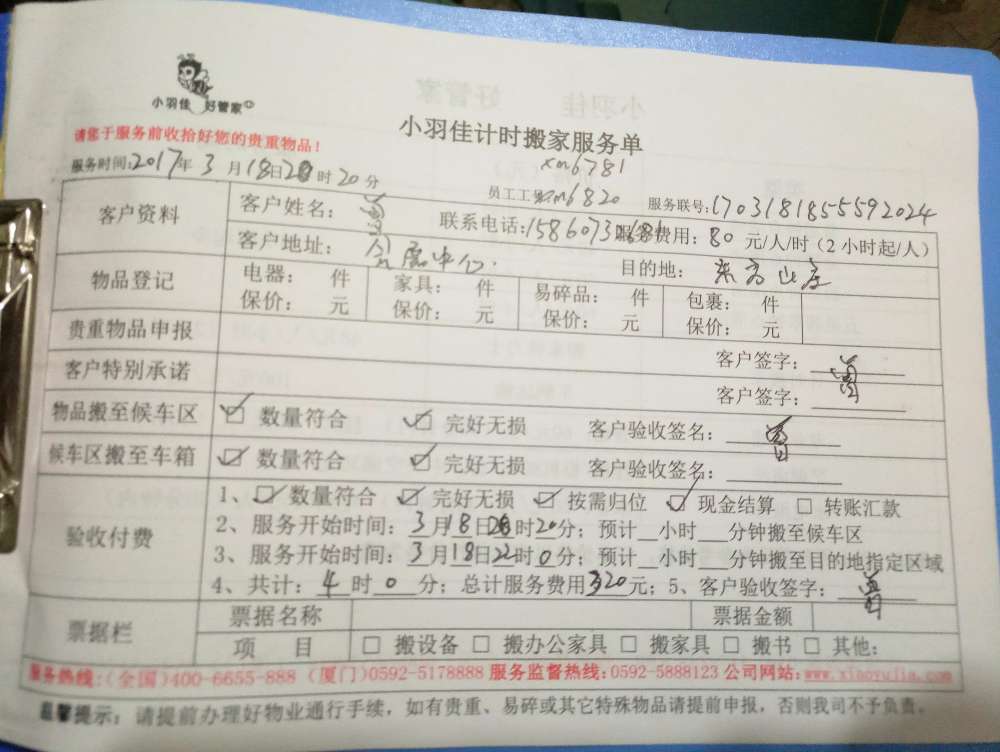 小羽佳 好管家
请您于服务前收拾好您的贵重物品！
小羽佳计时搬家服务单
xm6781
服务时间:2017年 3 月18日20时20分
员工工号:xm6820 服务联号:1703181855592024
客户资料 客户姓名: 曾 联系电话: 服务费用: 80 元/人/时（2小时起/人）
客户地址: 会展中心. 目的地: 山庄
物品登记 电器: 件 家具: 件 易碎品: 件 包裹: 件
保价: 元 保价: 元 保价: 元 保价: 元
贵重物品申报 客户签字: 曾
客户特别承诺 客户签字:
物品搬至候车区 ☑ 数量符合 ☑ 完好无损 客户验收签名: 曾
候车区搬至车箱 ☑ 数量符合 ☑ 完好无损 客户验收签名:
验收付费 1、☑ 数量符合 ☑ 完好无损 ☑ 按需归位 ☑ 现金结算 □ 转账汇款
2、服务开始时间: 3月18日20时20分；预计__小时___分钟搬至候车区
3、服务开始时间: 3月18日22时0分；预计__小时___分钟搬至目的地指定区域
4、共计: 4 时 0 分；总计服务费用320元；5、客户验收签字: 曾
票据栏 票据名称 票据金额
项 目 □ 搬设备 □ 搬办公家具 □ 搬家具 □ 搬书 □ 其他:
服务热线:(全国)400-6655-888 (厦门)0592-5178888 服务监督热线:0592-5888123 公司网站:www.xiaoyujia.com
温馨提示: 请提前办理好物业通行手续，如有贵重、易碎或其它特殊物品请提前申报，否则我司不予负责。